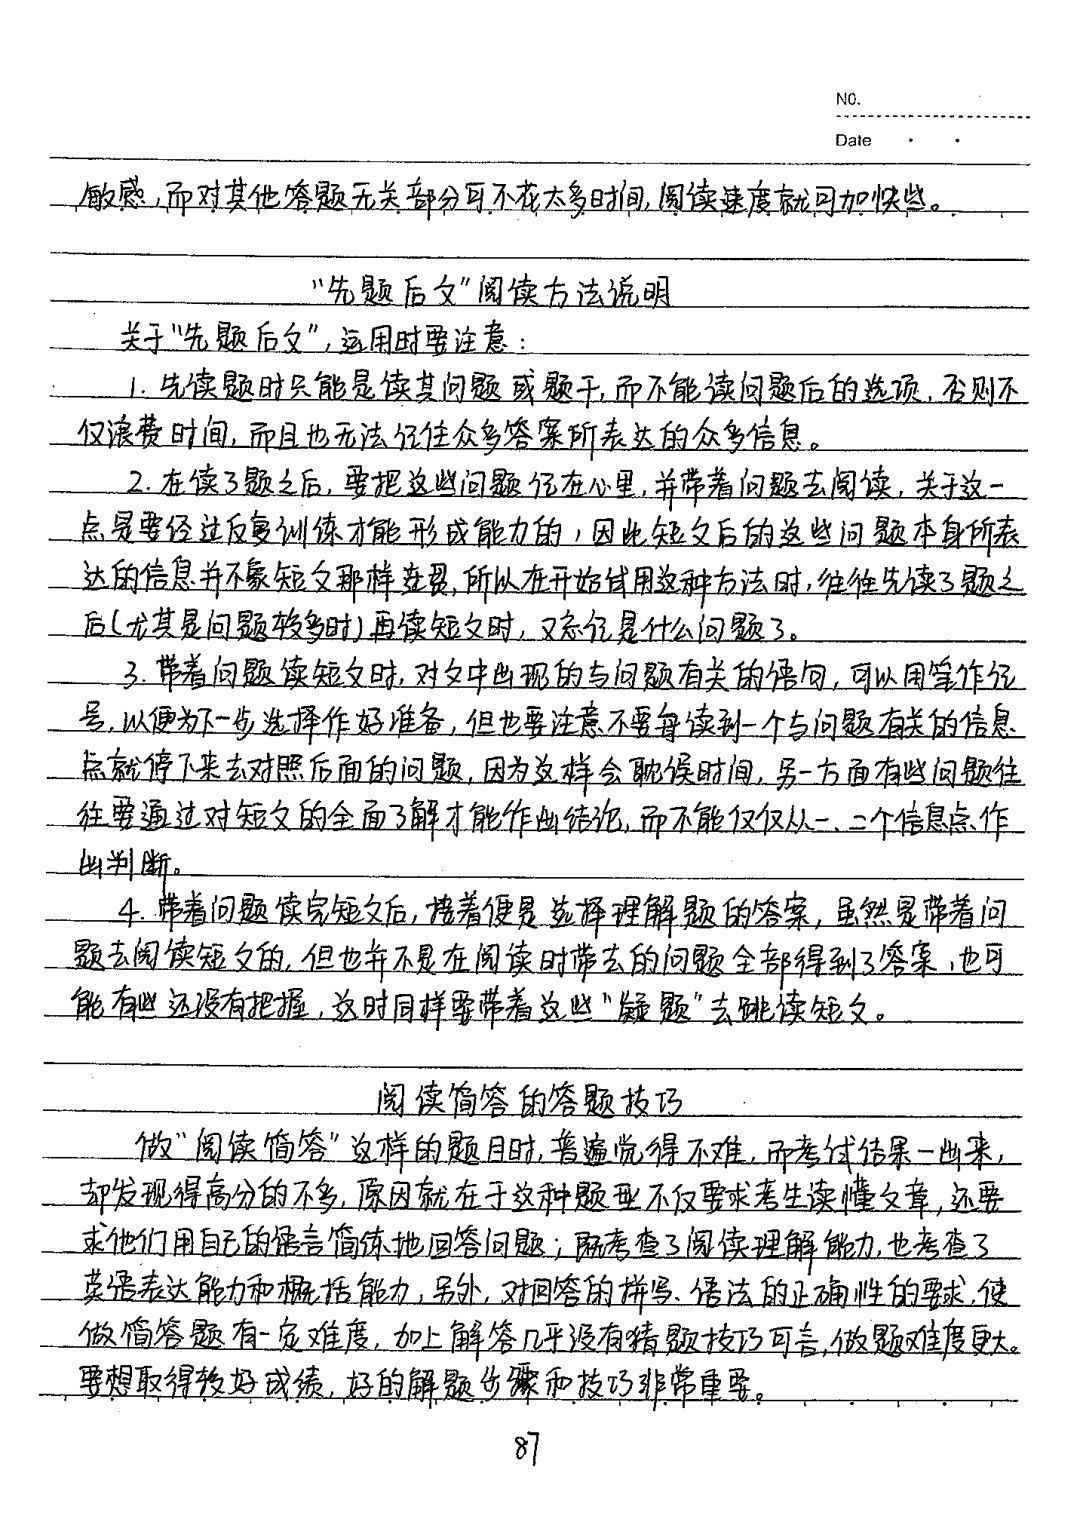 NO.
Date
敏感，而对其他答题无关部分可不花太多时间，阅读速度就可加快些。
“先题后文”阅读方法说明
关于“先题后文”，运用时要注意：
1. 先读题时只能是读其问题或题干，而不能读问题后的选项，否则不
仅浪费时间，而且也无法记住众多答案所表达的众多信息。
2. 在读了题之后，要把这些问题记在心里，并带着问题去阅读，关于这一
点是要经过反复训练才能形成能力的，因此短文后的这些问题本身所表
达的信息并不象短文那样连贯，所以在开始试用这种方法时，往往先读了题之
后(尤其是问题较多时)再读短文时，又忘记是什么问题了。
3. 带着问题读短文时，对文中出现的与问题有关的语句，可以用笔作记
号，以便为下一步选择作好准备，但也要注意不要每读到一个与问题有关的信息
点就停下来去对照后面的问题，因为这样会耽误时间，另一方面有些问题往
往要通过对短文的全面了解才能作出结论，而不能仅仅从一、二个信息点作
出判断。
4. 带着问题读完短文后，接着便是选择理解题的答案，虽然是带着问
题去阅读短文的，但也并不是在阅读时带去的问题全部得到了答案，也可
能有些还没有把握，这时同样要带着这些“疑题”去跳读短文。
阅读简答的答题技巧
做“阅读简答”这样的题目时，普遍觉得不难，而考试结果一出来，
却发现得高分的不多，原因就在于这种题型不仅要求考生读懂文章，还要
求他们用自己的语言简练地回答问题；既考查了阅读理解能力，也考查了
英语表达能力和概括能力，另外，对回答的拼写、语法的正确性的要求，使
做简答题有一定难度，加上解答几乎没有猜题技巧可言，做题难度更大。
要想取得较好成绩，好的解题步骤和技巧非常重要。
87